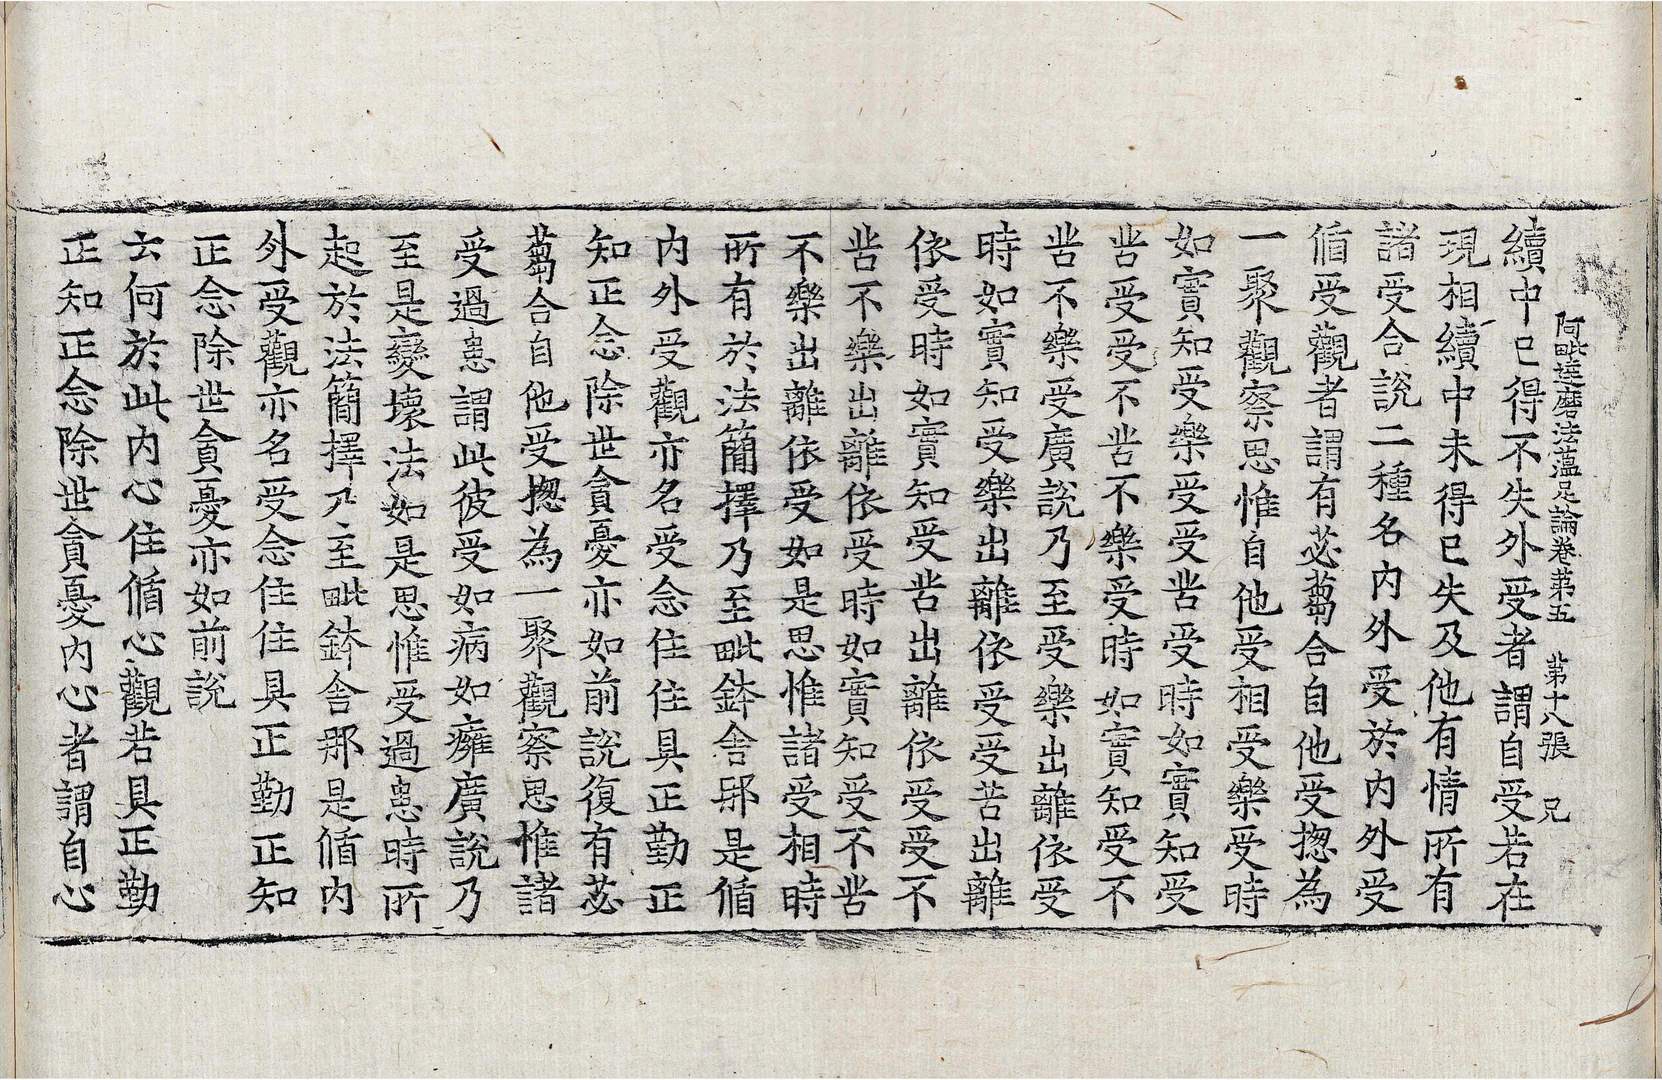 阿毗達磨法蘊足論卷第五 第十八張 兄
續中已得不失外受者謂自受若在
現相續中未得已失及他有情所有
諸受合說二種名內外受於內外受
循受觀者謂有苾蒭合自他受揔為
一聚觀察思惟自他受相受樂受時
如實知受樂受受苦受時如實知受
苦受受不苦不樂受時如實知受不
苦不樂受廣說乃至受樂出離依受
時如實知受樂出離依受受苦出離
依受時如實知受苦出離依受受不
苦不樂出離依受時如實知受不苦
不樂出離依受如是思惟諸受相時
所有於法簡擇乃至毗鉢舍那是循
內外受觀亦名受念住住具正勤正
知正念除世貪憂亦如前說復有苾
蒭合自他受揔為一聚觀察思惟諸
受過患謂此彼受如病如癰廣說乃
至是變壞法如是思惟受過患時所
起於法簡擇乃至毗鉢舍那是循內
外受觀亦名受念住住具正勤正知
正念除世貪憂亦如前說
云何於此內心住循心觀若具正勤
正知正念除世貪憂內心者謂自心